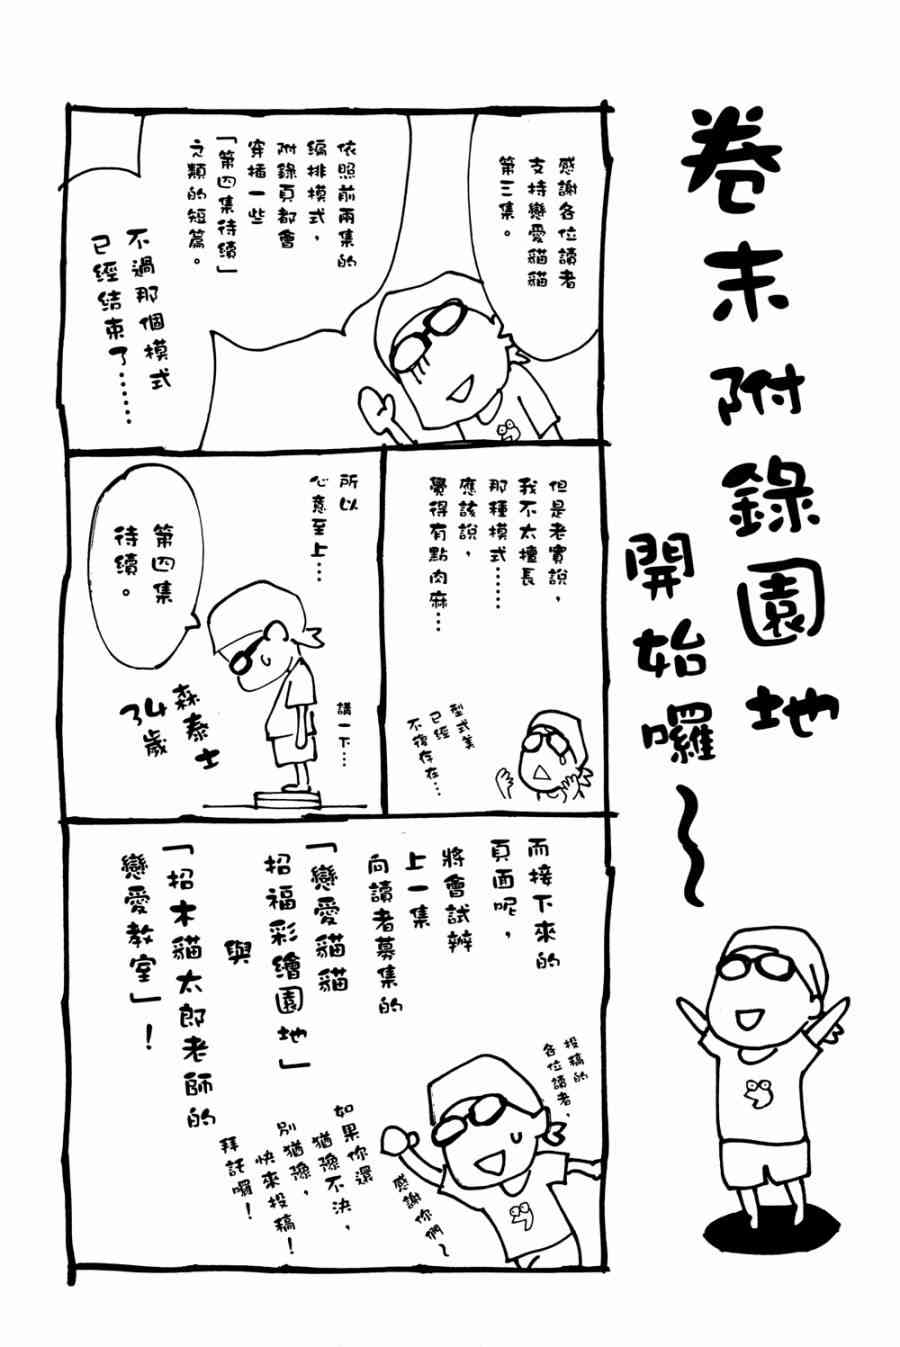 卷末附錄園地
開始囉～
感謝各位讀者
支持戀愛貓貓
第三集。
依照前兩集的
編排模式，
附錄頁都會
穿插一些
「第四集待續」
之類的短篇。
不過那個模式
已經結束了……
但是老實說，
我不太擅長
那種模式……
應該說，
覺得有點肉麻…
型式美
已經
不復存在…
所以
心意至上…
講一下…
第四集
待續。
森泰士
34歲
而接下來的
頁面呢，
將會試辦
上一集
向讀者募集的
「戀愛貓貓
招福彩繪園地」
與
「招木貓太郎老師的
戀愛教室」！
投稿的
各位讀者，
感謝你們～
如果你還
猶豫不決，
別猶豫，
快來投稿！
拜託囉！